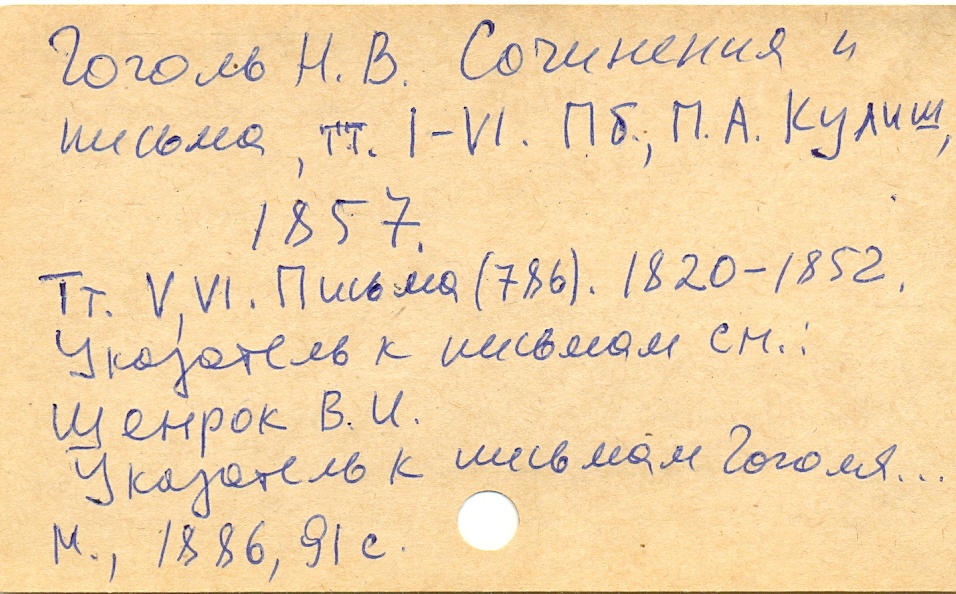 Гоголь Н. В. Сочинения и
письма, тт. I-VI. Пб., П. А. Кулиш,
1857.
Тт. V, VI. Письма (786). 1820-1852.
Указатель к письмам см.:
Шенрок В. И.
Указатель к письмам Гоголя...
М., 1886, 91 с.